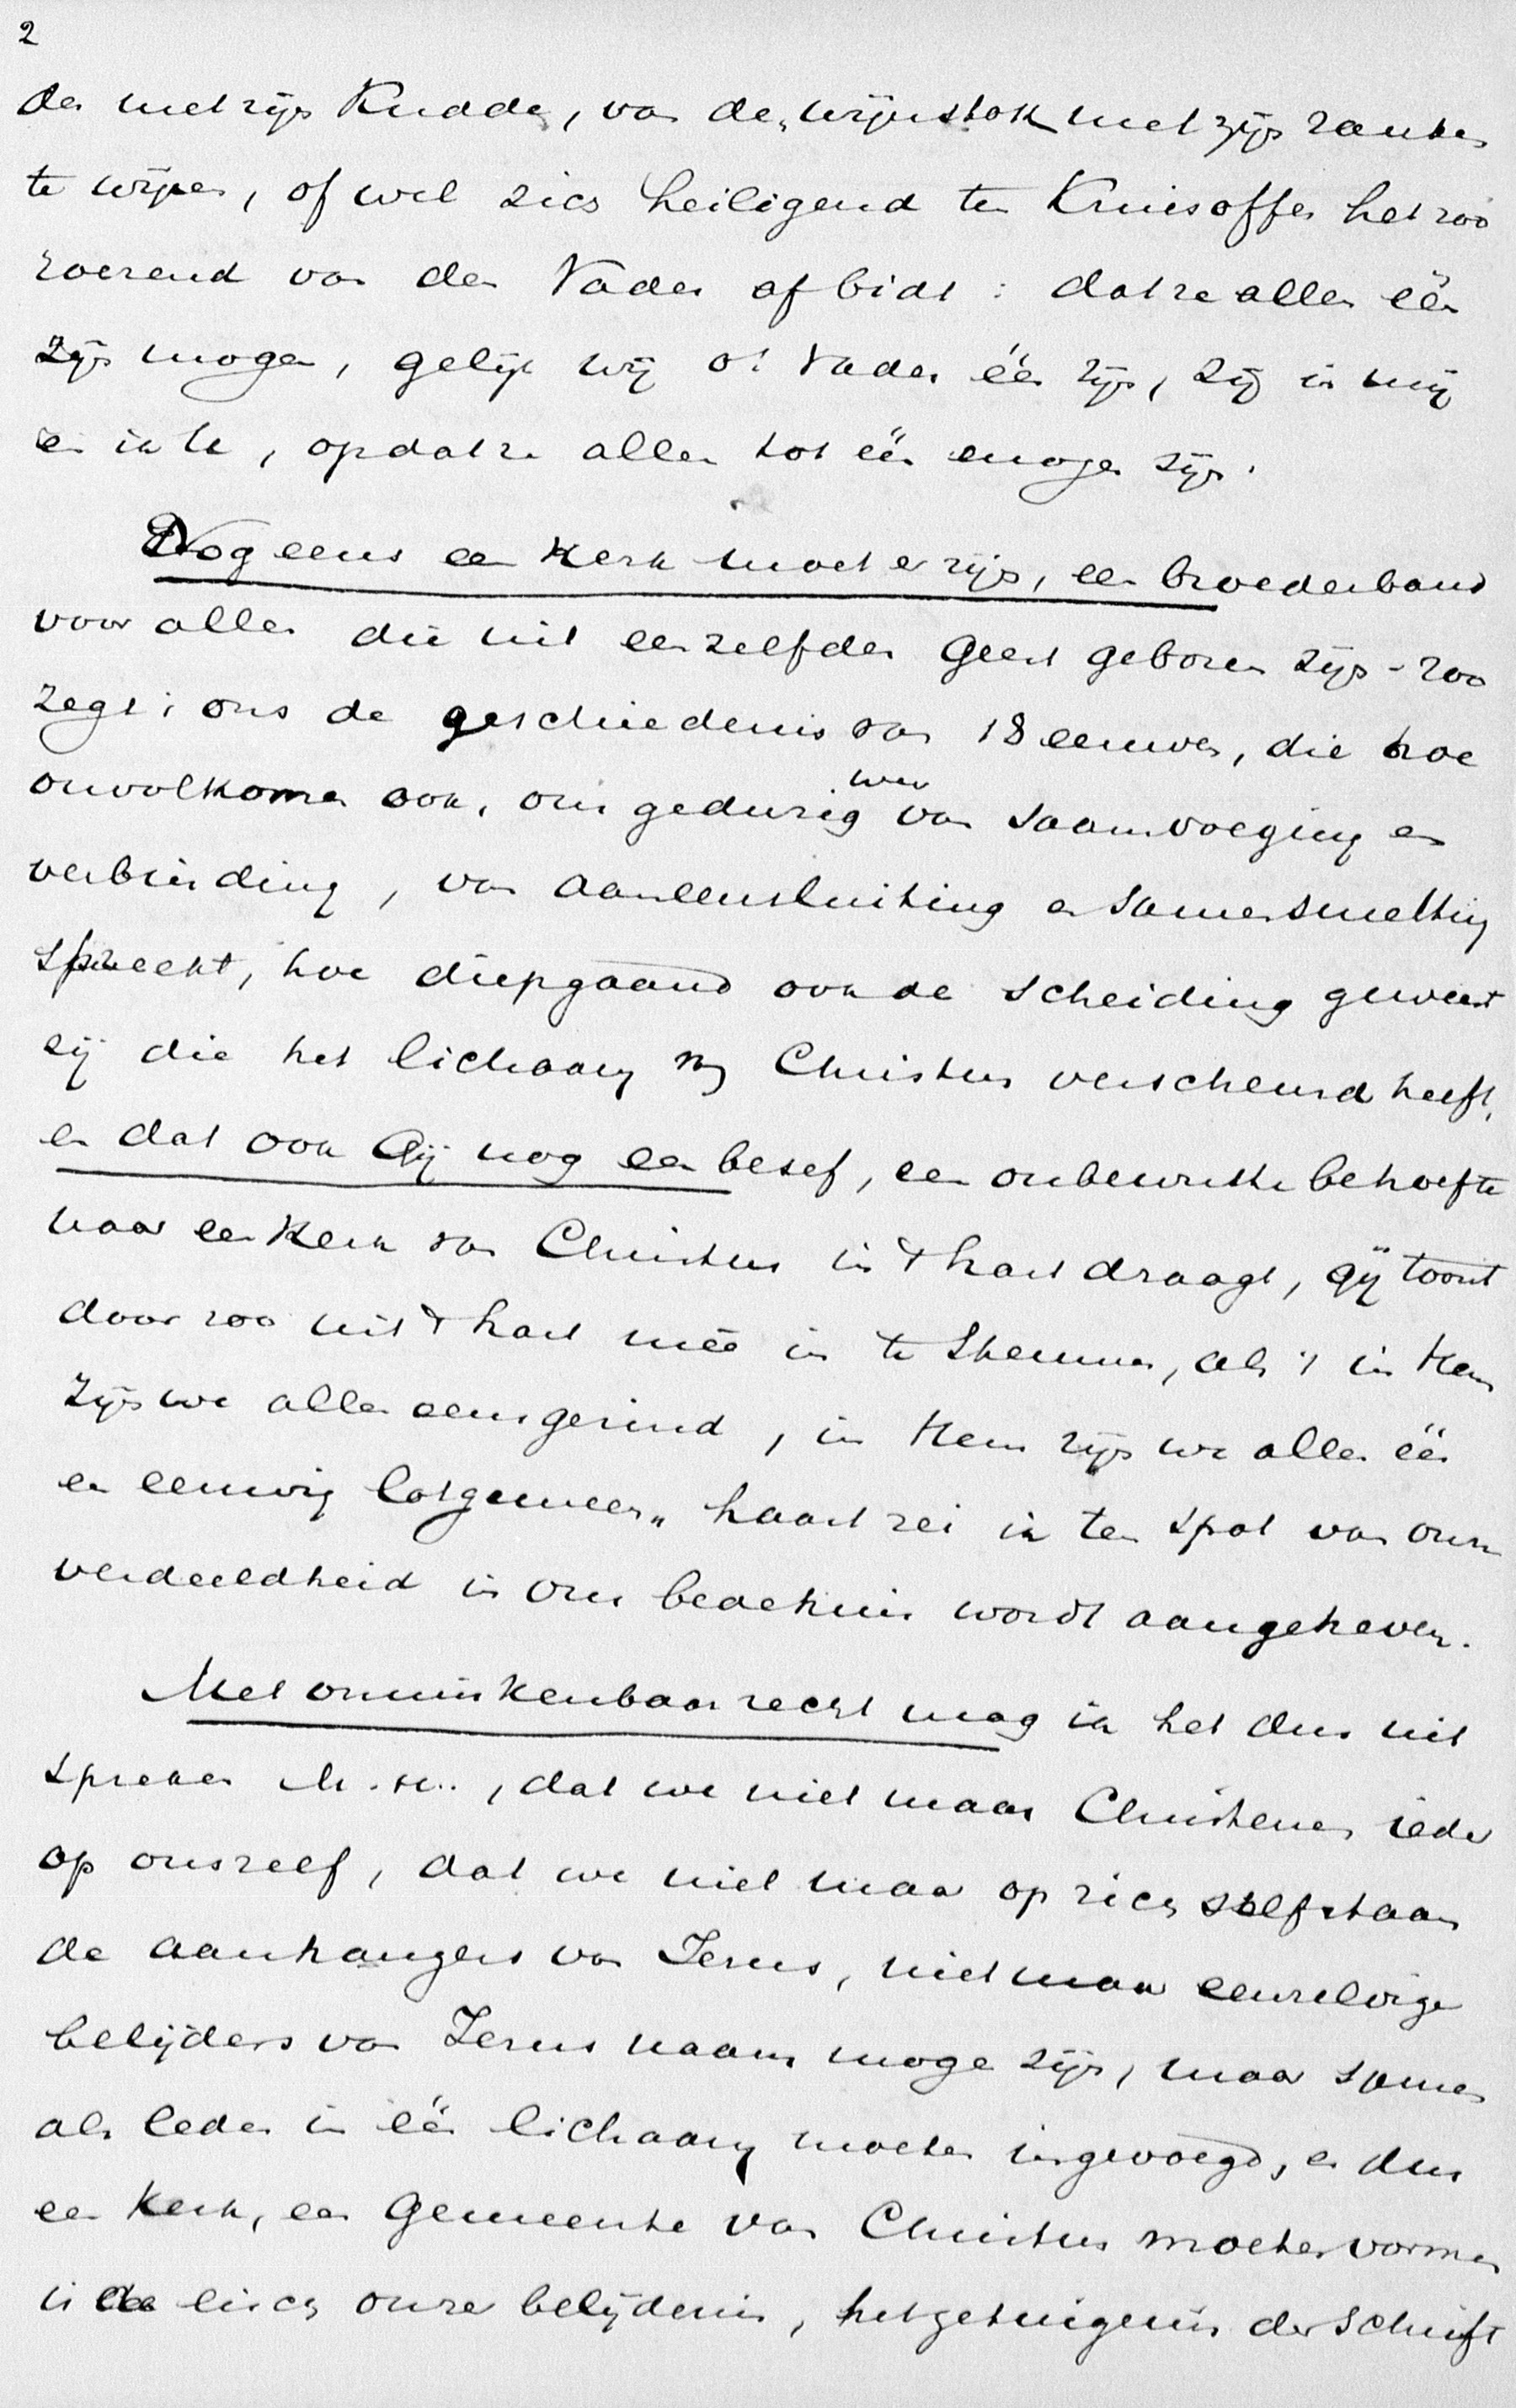 2
der met zijn Kudde, van den wijnstok met zijn ranken
te wijzen, of wel zich heiligend ten Kruisoffer het zoo
roerend van den Vader afbidt: dat ze allen één
zijn mogen, gelijk wij o! Vader één zijn, zij in mij
en ik in U, opdat ze allen tot één mogen zijn.
Nog eens een Kerk moet er zijn, een broederband
voor allen die uit eenzelfden Geest geboren zijn - zoo
zegt ons de geschiedenis van 18 eeuwen, die hoe
onvolkomen ook, ons gedurig weer van saamvoeging en
verbinding, van aaneensluiting en samensmelting
spreekt, hoe diepgaand ook de scheiding geweest
zij die het lichaam van Christus verscheurd heeft,
en dat ook Gij nog een besef, een onbewuste behoefte
naar een Kerk van Christus in 't hart draagt, gij toont
door zoo uit 't hart meê in te stemmen, als 't in Hem
zijn we allen eensgezind, in Hem zijn we allen één
en eeuwig lotgemeen" haast zei ik ten spot van onze
verdeeldheid in ons bedehuis wordt aangeheven.
Met onmiskenbaar recht mag ik het dus uit
spreken M.H., dat we niet maar Christenen ieder
op onszelf, dat we niet maar op zich zelf staan
de aanhangers van Jezus, niet maar eenzelvige
belijders van Jezus naam mogen zijn, maar samen
als leden in één lichaam moeten ingevoegd, en dus
een Kerk, een Gemeente van Christus moeten vormen
is onze belijdenis, het getuigenis der Schrift